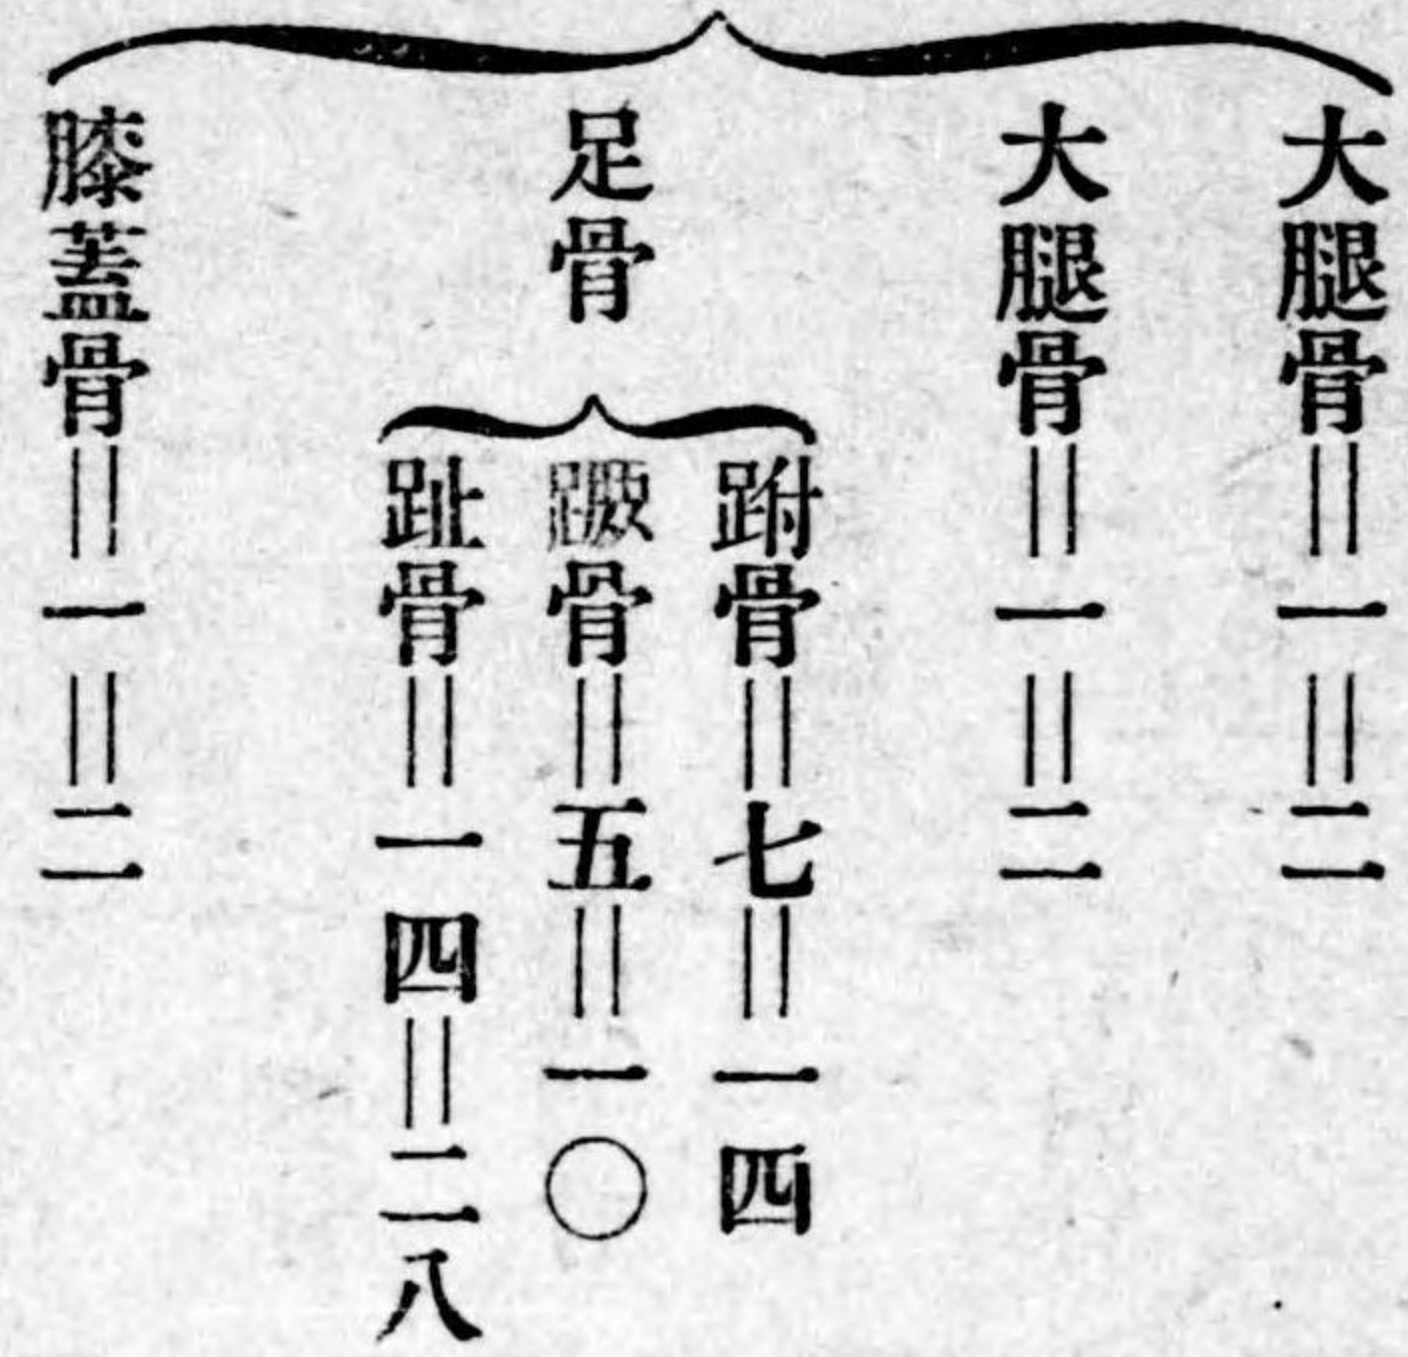 大腿骨＝一＝二
大腿骨＝一＝二
足骨
跗骨＝七＝一四
蹶骨＝五＝一〇
趾骨＝一四＝二八
膝蓋骨＝一＝二